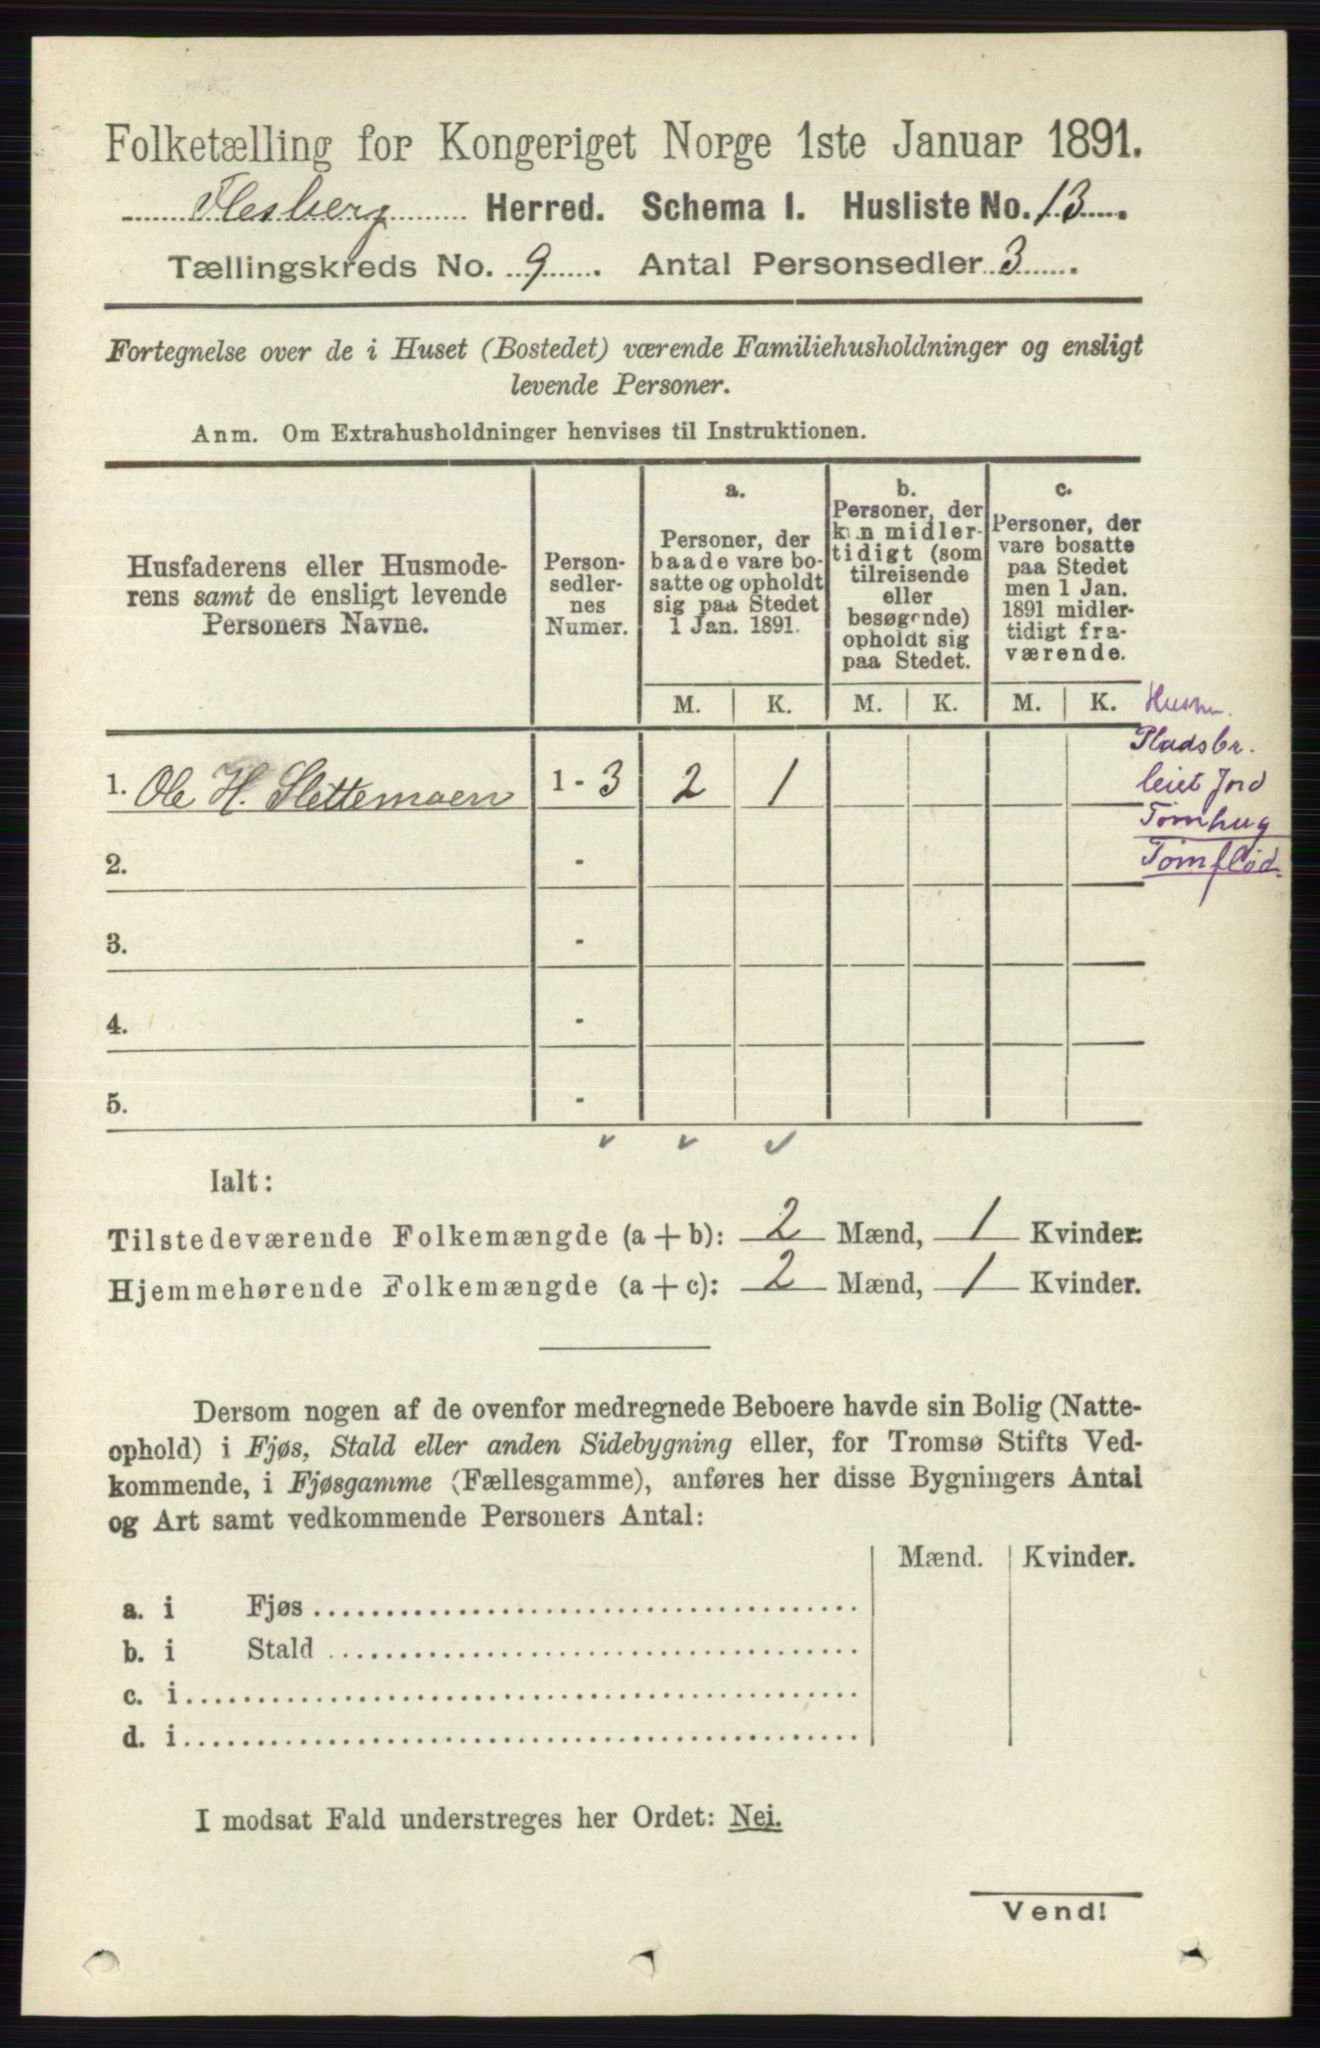 Folketælling for Kongeriget Norge 1ste Januar 1891.
Flesberg Herred. Schema I. Husliste No. 13.
Tællingskreds No. 9. Antal Personsedler 3.
Fortegnelse over de i Huset (Bostedet) værende Familiehusholdninger og ensligt
levende Personer.
Anm. Om Extrahusholdninger henvises til Instruktionen.
Husfaderens eller Husmode-
rens samt de ensligt levende
Personers Navne.
Person-
sedler-
nes
Numer.
a.
Personer, der
baade vare bo-
satte og opholdt
sig paa Stedet
1 Jan. 1891.
b.
Personer, der
kun midler-
tidigt (som
tilreisende
eller
besøgende)
opholdt sig
paa Stedet.
c.
Personer, der
vare bosatte
paa Stedet
men 1 Jan.
1891 midler-
tidigt fra-
værende.
M. K. M. K. M. K.
Husm.
Pladsbr.
leiet Jord
Tømhug
Tømflød.
1. Ole H. Slettemoen 1 - 3 2 1
2. -
3. -
4. -
5. -
Ialt:
Tilstedeværende Folkemængde (a + b): 2 Mænd, 1 Kvinder.
Hjemmehørende Folkemængde (a + c): 2 Mænd, 1 Kvinder.
Dersom nogen af de ovenfor medregnede Beboere havde sin Bolig (Natte-
ophold) i Fjøs, Stald eller anden Sidebygning eller, for Tromsø Stifts Ved-
kommende, i Fjøsgamme (Fællesgamme), anføres her disse Bygningers Antal
og Art samt vedkommende Personers Antal:
Mænd. Kvinder.
a. i Fjøs
b. i Stald
c. i
d. i
I modsat Fald understreges her Ordet: Nei.
Vend!